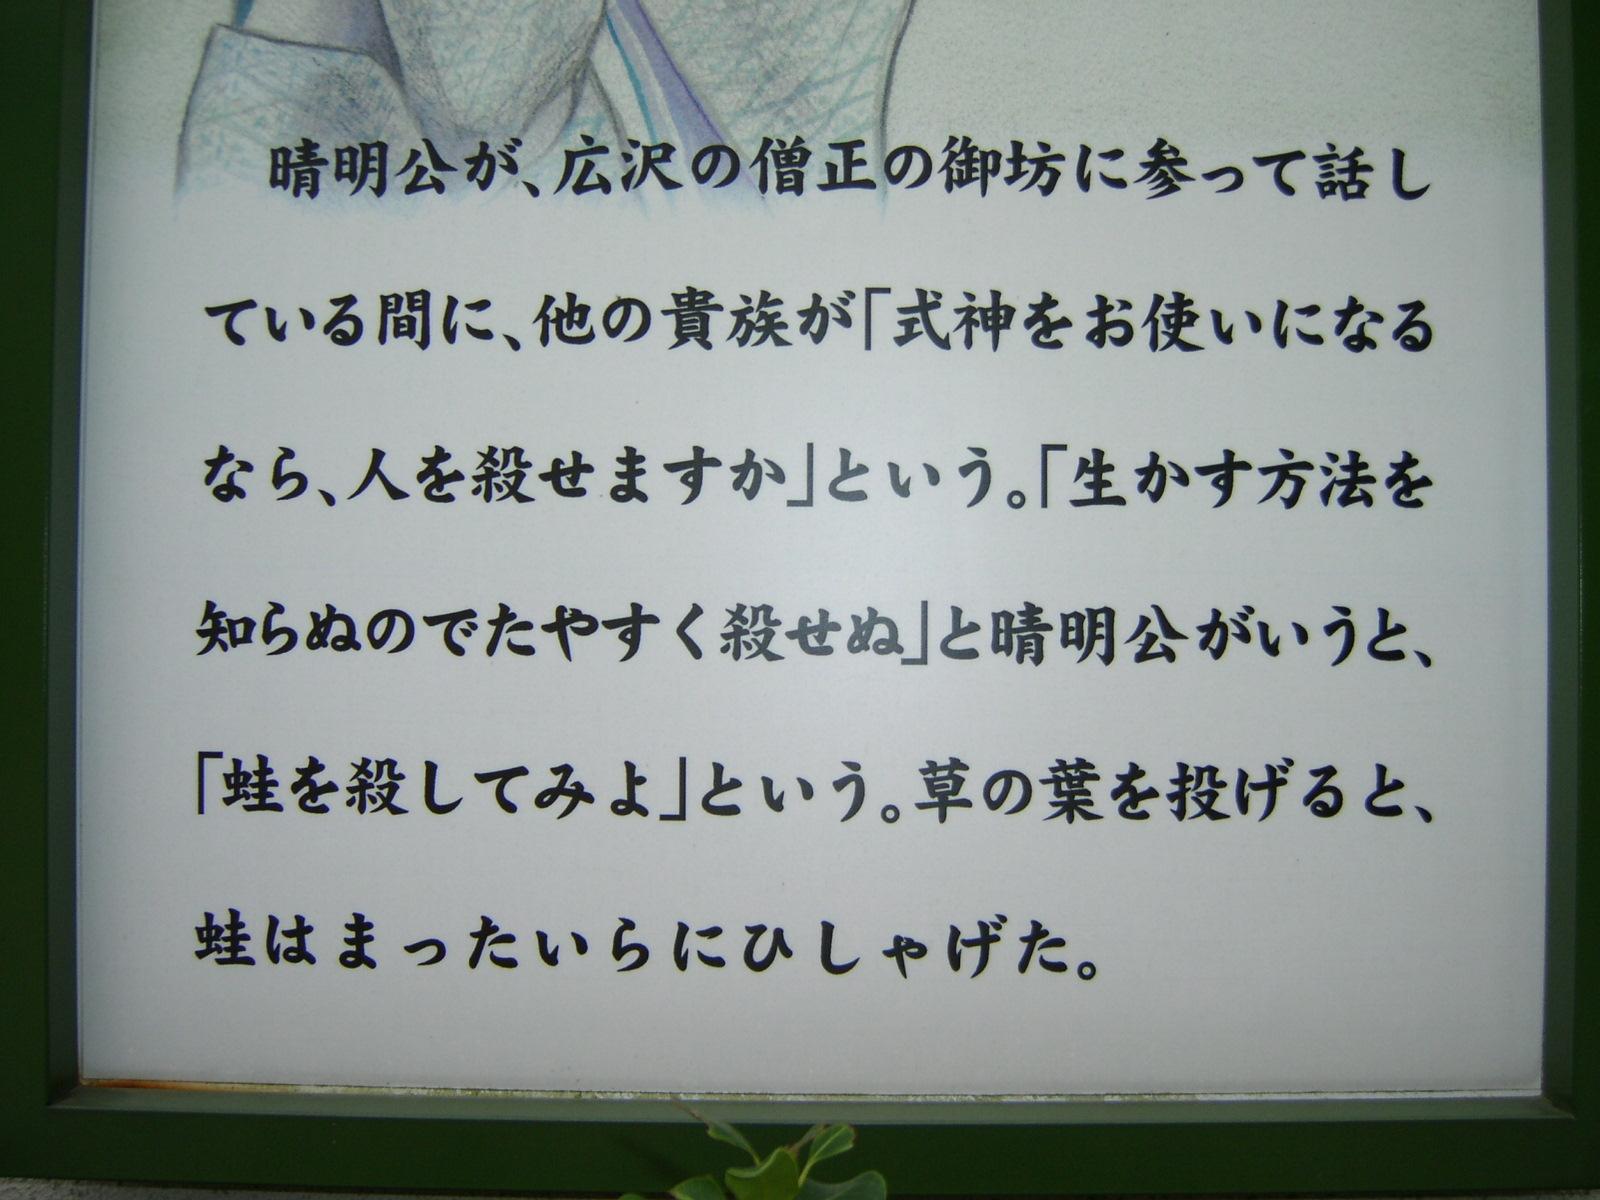 晴明公が、広沢の僧正の御坊に参って話し
ている間に、他の貴族が「式神をお使いになる
なら、人を殺せますか」という。「生かす方法を
知らぬのでたやすく殺せぬ」と晴明公がいうと、
「蛙を殺してみよ」という。草の葉を投げると、
蛙はまったいらにひしゃげた。